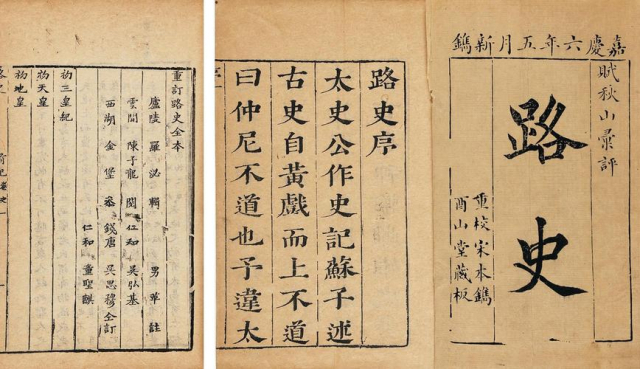 嘉慶六年五月新鐫
賦秋山彙評
路史
重校宋本鐫
酉山堂藏板
路史序
太史公作史記蘇子述
古史自黃戲而上不道
曰仲尼不道也予違太
重訂路史全本
廬陵 羅泌 輯 男 苹 註
雲間 陳子龍 閱 仁和 吳弘基
西湖 金堡 參 錢唐 吳思穆 仝訂
仁和 董聖麒
初三皇紀
初天皇
初地皇